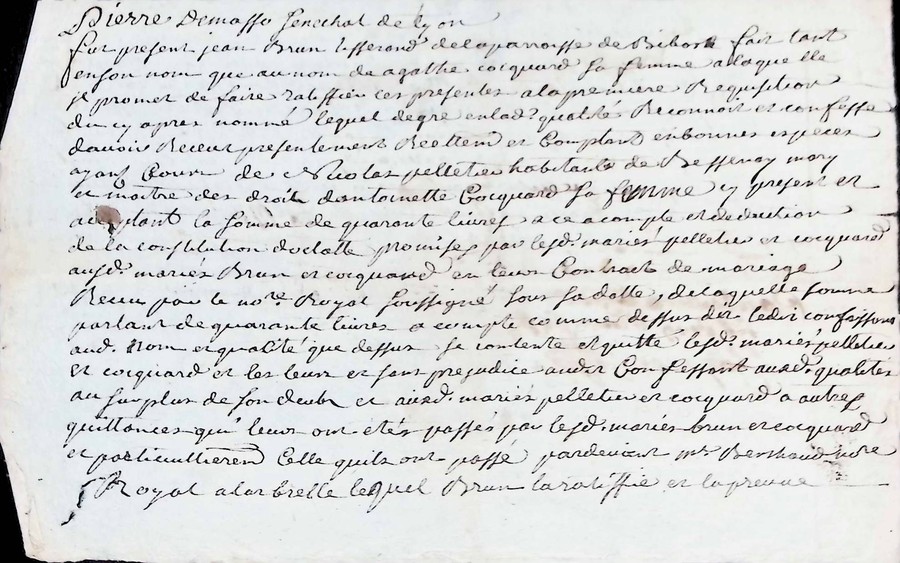 Pierre Demasso Senechal de Lyon
fut present jean Brun tisserand de la parroisse de Bibost fait tant
en son nom que au nom de agathe cocquard sa femme a laquelle
je promet de faire ratiffier ces presentes a la premiere Requisition
du cy apres nommé lequel degré en lad.e qualité Reconnoit et confesse
davoir Receu presentement Reellem et Comptant en bonnes especes
ayant Cours de Nicolas pelletier habitante de Bessenay mary
et maitre des droits dantoinette Cocquard sa femme cy present et
la somme de quarante livres a ce a compte et deduction
de la constitution de dotte promise par lesd. mariés pelletier et cocquard
ausd. mariés Brun et cocquard en leur Contract de mariage
Receu par le no.re Royal soussigné sous sa datte, de laquelle somme
partant de quarante livres a compte comme dessus dit ledit confessant
aud. Nom et qualité que dessus se contente et quitte lesd. mariés pelletier
et cocquard et les leurs et sans prejudice audit Confessant ausd. qualités
au surplus de son deub et ausd. mariés pelletier et cocquard a autres
quittances qui leurs ont etés passés par lesd. mariés brun et cocquard
et particullierem Celle quils ont passé pardevant m.e Berthaud no.re
Royal a larbrelle lequel Brun la ratiffie et lapreuve